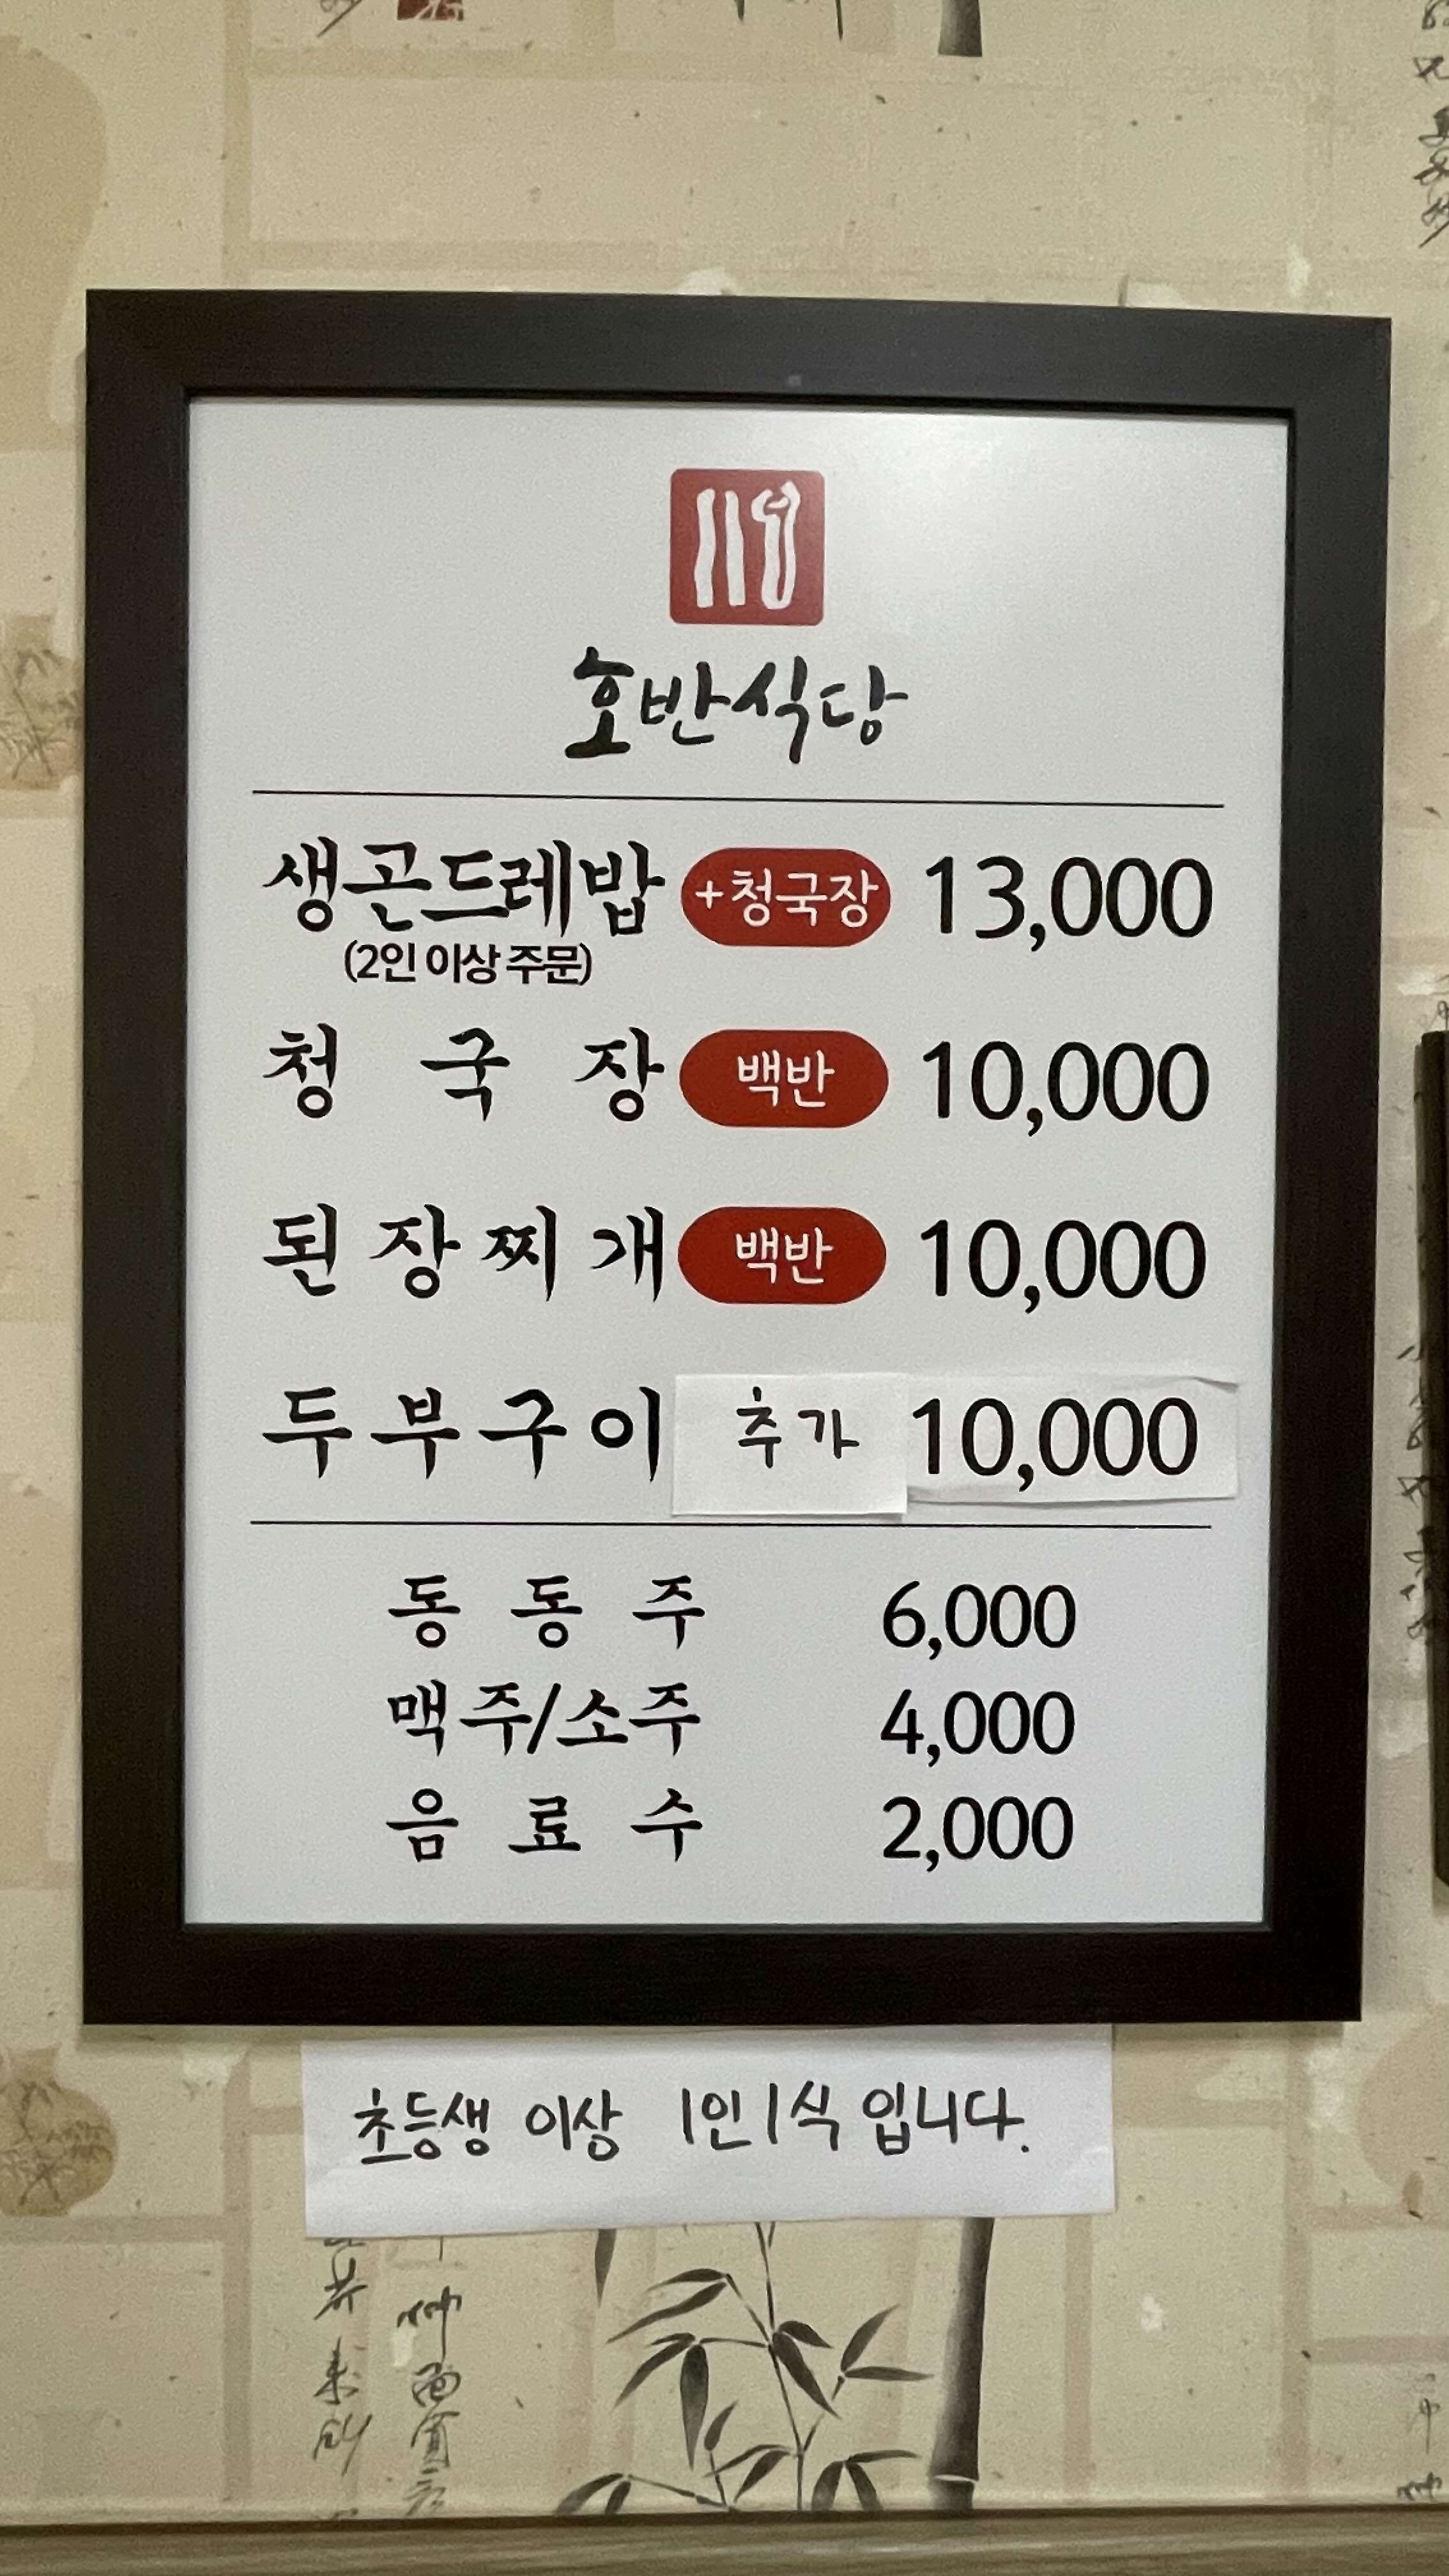 호반식당
생곤드레밥 +청국장 13,000
(2인 이상 주문)
청국장 백반 10,000
된장찌개 백반 10,000
두부구이 추가 10,000
동동주 6,000
맥주/소주 4,000
음료수 2,000
초등생 이상 1인1식 입니다.